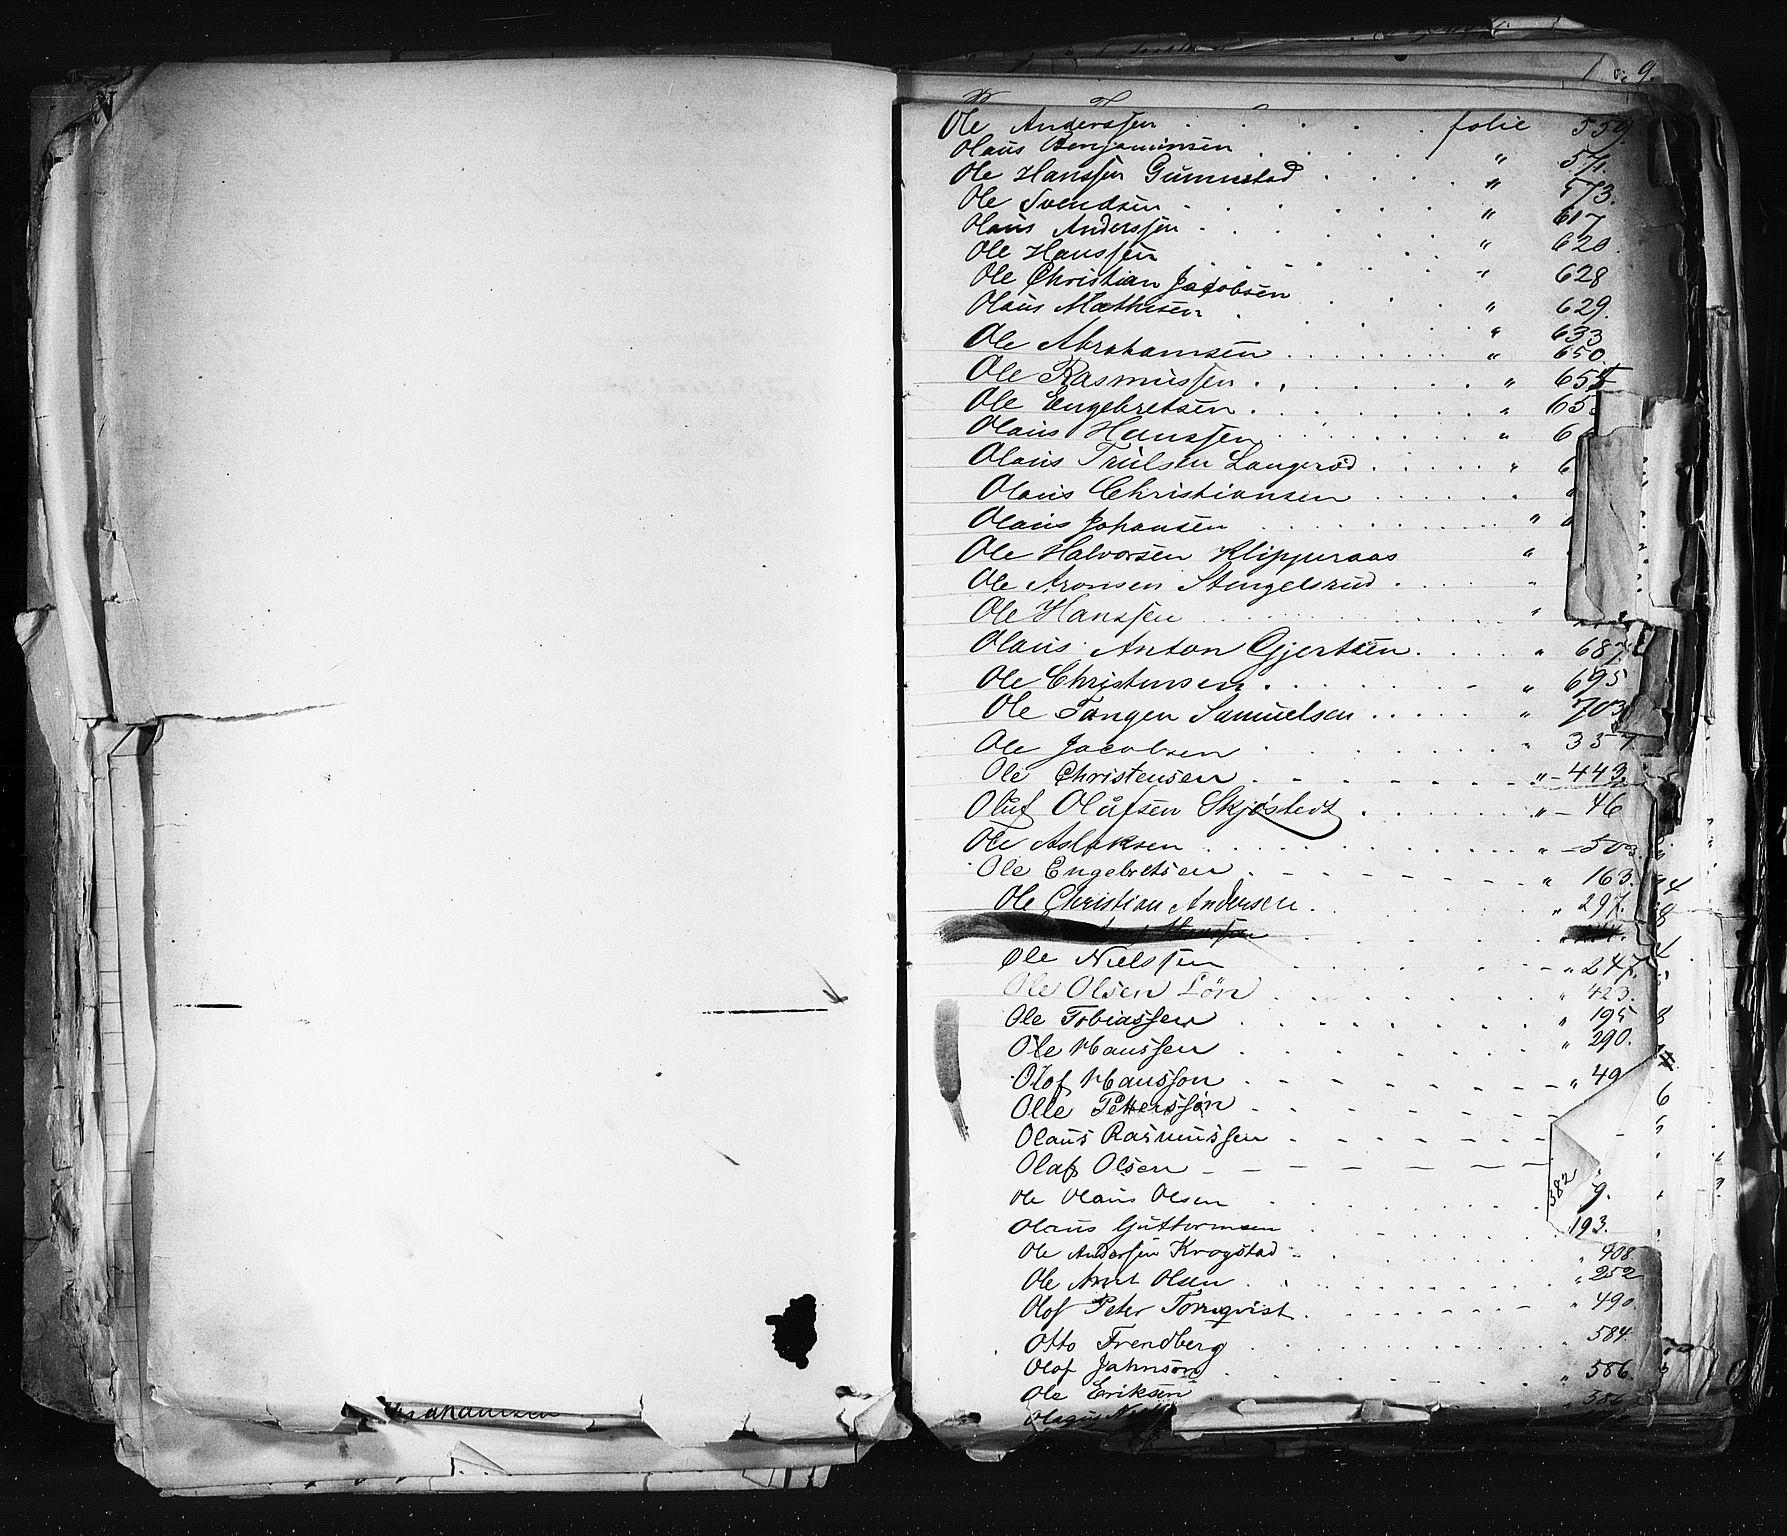 Ole Anderssen . . . . . folie 559.
Olaus Benjaminsen . . . . " 571.
Ole Hanssen Gunnestad . . . . " 573.
Ole Svendsen . . . . . " 617
Olaus Anderssen . . . . . " 620.
Ole Hanssen . . . . . " 628
Ole Christian Jacobsen . . . " 629.
Olaus Mathisen . . . . " 633
Ole Abrahamsen . . . . . . " 650.
Ole Rasmussen . . . . . . " 655
Ole Engebretsen . . . . . . " 65
Olaus Hanssen . . . . . . " 6
Olaus Trulsen Langerød . . . . . " 6
Olaus Christiansen . . . . . "
Olaus Johansen . . . . . . "
Ole Halvorsen Klippuraas "
Ole Aronsen Stingelsrud . . . . "
Ole Hanssen . . . . . . "
Olaus Anton Gjertsen . . . . " 687
Ole Christensen . . . . . . " 695
Ole Tangen Samuelsen . . . . . " 703
Ole Jacobsen . . . . . . " 357
Ole Christensen . . . . . . " 443.
Oluf Olåfsen Skjöstedt . . . . . " 46
Ole Aslaksen . . . . . . " 503.
Ole Engebretsen . . . . . . " 163.
Ole Christian Andersen . . . . . " 297.
Hanssen
Ole Nielssen . . . . . . " 247.
Ole Olsen Lön . . . . . . " 423.
Ole Tobiassen . . . . . . " 195
Ole Hanssen . . . . . . " 290.
Olof Hansson . . . . . . " 49
Olle Petterssön . . . . . .
Olaus Rasmussen . . . . . .
Olaf Olsen . . . . . . 382
Ole Olaus Olsen . . . . . . 9.
Olaus Guttormsen . . . . . . 193.
Ole Anderssen Krogstad . . . . . " 408.
Ole Arnt Olsen . . . . . . " 252
Olof Peter Törnqvist . . . . . . " 490.
Otto Frendberg . . . . . . " 584.
Olof Jahnson . . . . . . " 586.
Ole Eriksen . . . . . . " 386
Abrahamsen